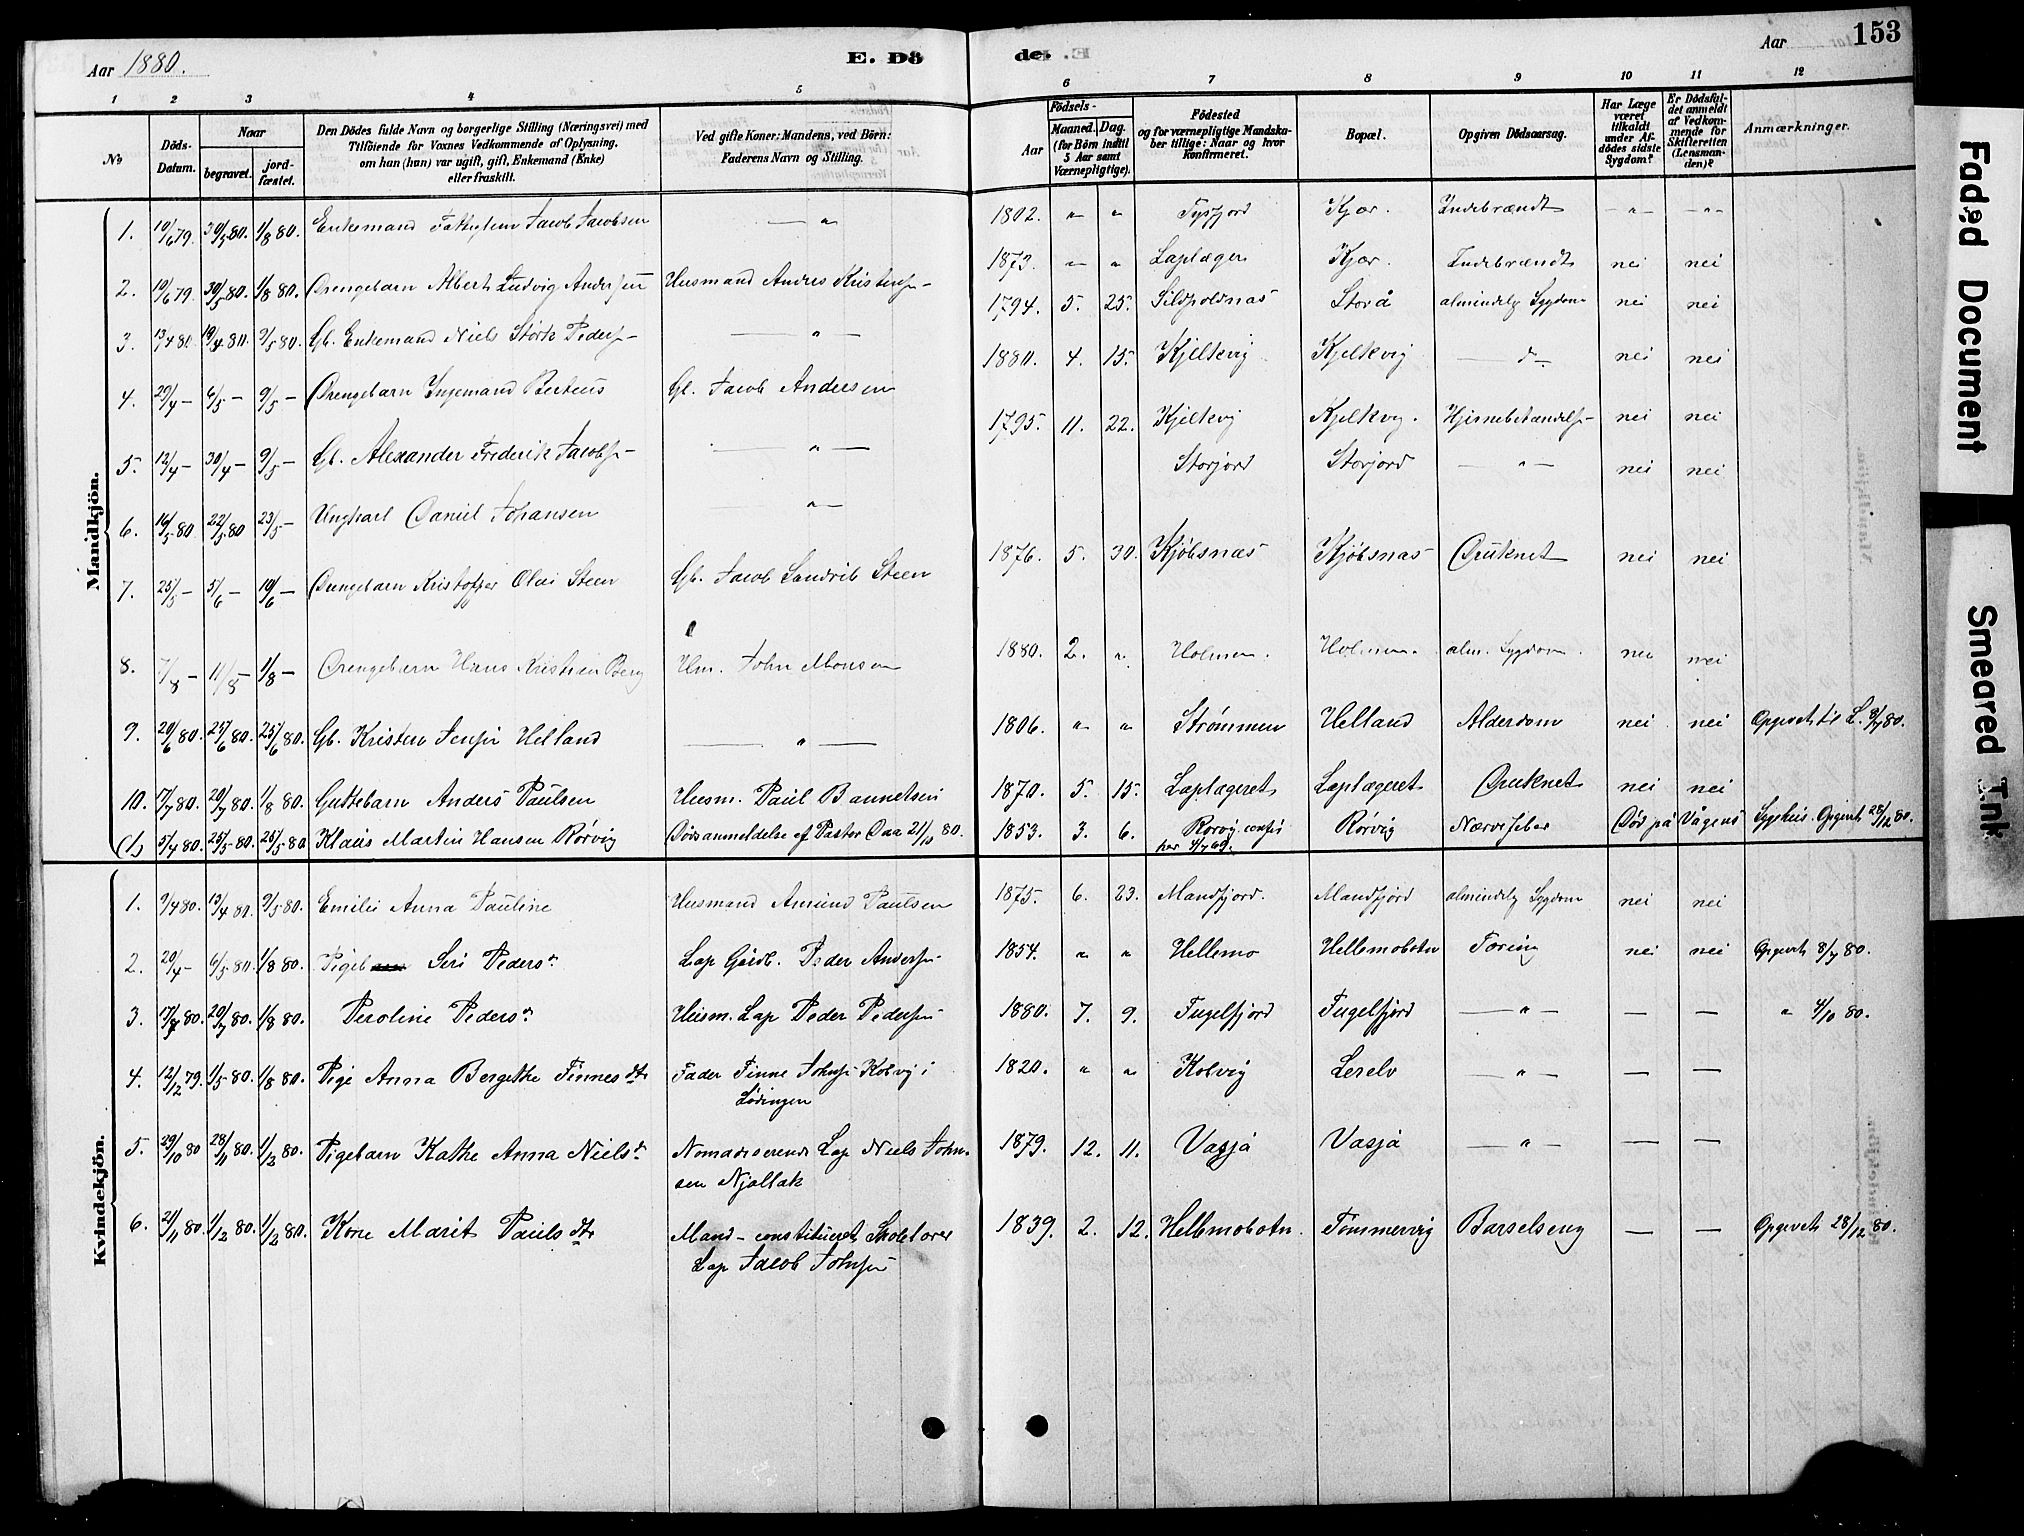 Aar 1880.
E. Dö
de.
Aar
153
1 2 3 4 5
6 7 8 9 10 11 12
No
Döds-Datum.
Naar
begravet.
jordfæstet.
Den Dödes fulde Navn og borgerlige Stilling (Næringsvei) med
Tilföiende for Voxnes Vedkommende af Oplysning,
om han (hun) var ugift, gift, Enkemand (Enke)
eller fraskilt.
Ved gifte Koner: Mandens, ved Börn:
Faderens Navn og Stilling.
Födsels-
Aar
Maaned. Dag.
(for Börn indtil 5 Aar samt Værnepligtige).
Födested
og for værnepligtige Mandskaber tillige: Naar og hvor Konfirmeret.
Bopæl.
Opgiven Dödsaarsag.
Har Læge været tilkaldt under Afdödes sidste Sygdom?
Er Dödsfaldet anmeldt af Vedkommende for Skifteretten (Lensmanden)?
Anmærkninger.
Mandkjön.
1. 10/6 79. 30/5 80. 1/8 80. Enkemand Fattiglem Jacob Jacobsen — " 1802. " " Tysfjord Kjær. Indebrændt — " — — " —
2. 10/6 79. 30/5 80. 1/8 80. Drengebarn Albert Ludvig Andersen Husmand Andres Kristens- 1873. — " Laplæger Kjær. Indebrændt nei nei
3. 13/4 80. 19/4 80. 9/5 80. Gb. Enkemand Niels Stork Peders- — " — 1794. 5. 25. Sildpoldnæs Storå almindelig Sygdom nei nei
4. 29/4 — 6/5 — 9/5 — Drengebarn Ingemand Berteus Gb. Jacob Andersen 1880. 4. 15. Kjelkvig Kjelkvig — d — nei nei
5. 12/4 — 30/4 — 9/5 — Gb. Alexander Frederik Jacobs- — " — 1795. 11. 22. Kjelkvig Kjelkvig. Hjernebetændels- nei nei
6. 16/5 80 22/5 80 23/5 — Ungkarl Daniel Johansen — " — Storjord Storjord — " — nei nei
7. 25/5 — 5/6 — 10/6 — Drengebarn Kristoffer Olai Steen Gb. Jacob Sandvik Steen 1876. 5. 30. Kjöbsnæs Kjöbsnæs Druknet nei nei
8. 7/8 — 11/8 — 1/8 — Drengebarn Hans Kristian Berg Hm. John Monsen 1880. 2. " Holmen. Holmen. alm. Sygdom. nei nei
9. 20/6 80. 25/6 80. 25/6 80. Gb. Kristen Jensen Helland — " — 1806. " " Strømmen Helland Alderdom nei nei Opgivet til L. 9/7 80.
10. 17/7 80. 20/7 80. 1/8 80. Guttebarn Anders Paulsen Husm. Paul Bannetsen 1870. 5. 15. Laplægeret Laplægeret Druknet nei nei
(1) 5/4 80. 25/5 80. 25/5 80 Klaus Martin Hansen Rörvig Dödsanmeldelse af Pastor Daa 21/10 80. 1853. 3. 6. Rorvig confir her 4/7 69. Rörvig Nervefeber Död på Vågens Sygehus. Opgivet 28/12 80.
Kvindekjön.
1. 9/4 80. 13/4 80. 9/5 80. Emilie Anna Pauline Husmand Amund Paulsen 1875. 6. 23. Mandfjord. Mandfjord almindelig Sygdom nei nei
2. 20/4 — 6/5 80. 1/8 80. Pige Seri Peders Lap Gårdb. Peder Anders- 1854. " " Hellemo Hellemobotn Tæring nei nei Opgivet 8/7 80.
3. 17/7 80. 20/7 80. 1/8 80. Peroline Peders Husm. Lap Peder Peders- 1880. 7. 9. Fugelfjord Fugelfjord — " — — — " 4/10 80.
4. 12/12 79. 1/5 80. 1/8 80. Pige Anna Bergethe Finnesdtr Fader Finne Johns- Kolvig i 1820. " " Kolvig Leselv — " — — —
Lødingen
5. 29/10 80 28/11 80. 1/12 80. Pigebarn Kathe Anna Niels Nomadiserende Lap Niels John- 1879. 12. 11. Vasjå Vasjå — " — — —
sen Njallak
6. 21/11 80. 1/12 80. 1/12 80. Kone Marit Paulsdtr Mand — constitueret Skolelærer 1839. 2. 12. Hellemobotn. Tømmervig Barselseng — — Opgivet 28/12 80.
Lap Jacob Johns-
Faded Document
Smeared Ink